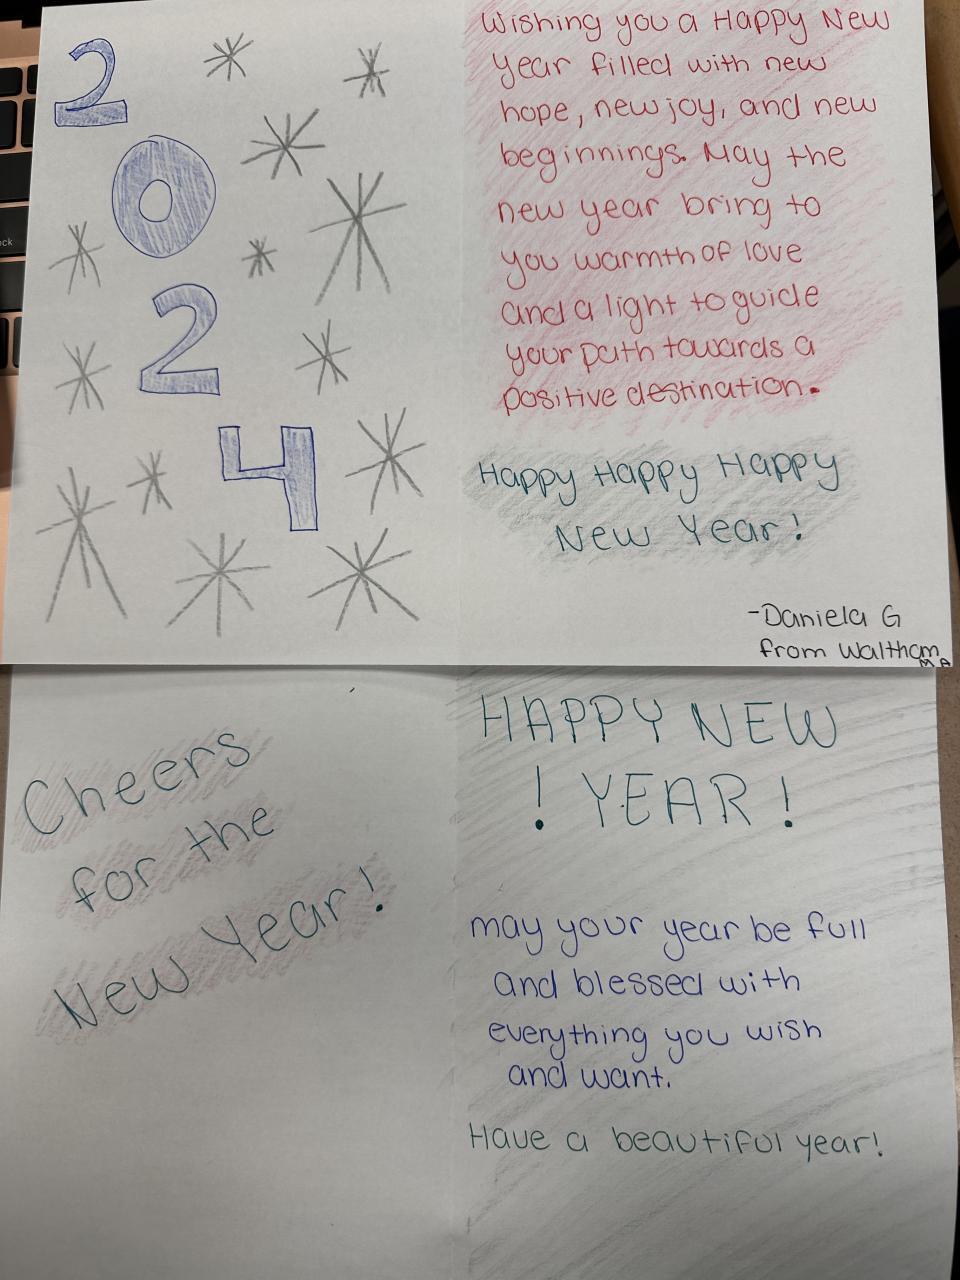 2
0
2
4
Wishing you a Happy New
Year filled with new
hope, new joy, and new
beginnings. May the
new year bring to
you warmth of love
and a light to guide
your path towards a
positive destination.
Happy Happy Happy
New Year!
-Daniela G
from Waltham
MA
Cheers
for the
New Year!
HAPPY NEW
! YEAR!
may your year be full
and blessed with
everything you wish
and want.
Have a beautiful year!